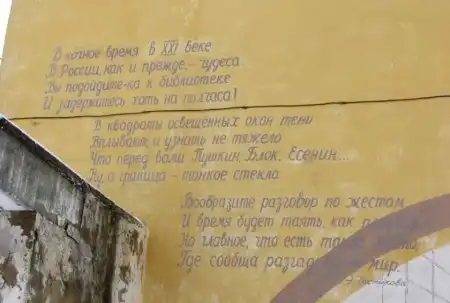 В ночное время в XXI веке
В России, как и прежде, - чудеса.
Вы подойдите-ка к библиотеке
И задержитесь хоть на полчаса!
В квадраты освещённых окон тени
Вплывают, и узнать не тяжело
Что перед вами Пушкин, Блок, Есенин...
Ну, а граница - тонкое стекло.
Вообразите разговор по жестам
И время будет таять, как
Но главное, что есть
Где сообща мир.